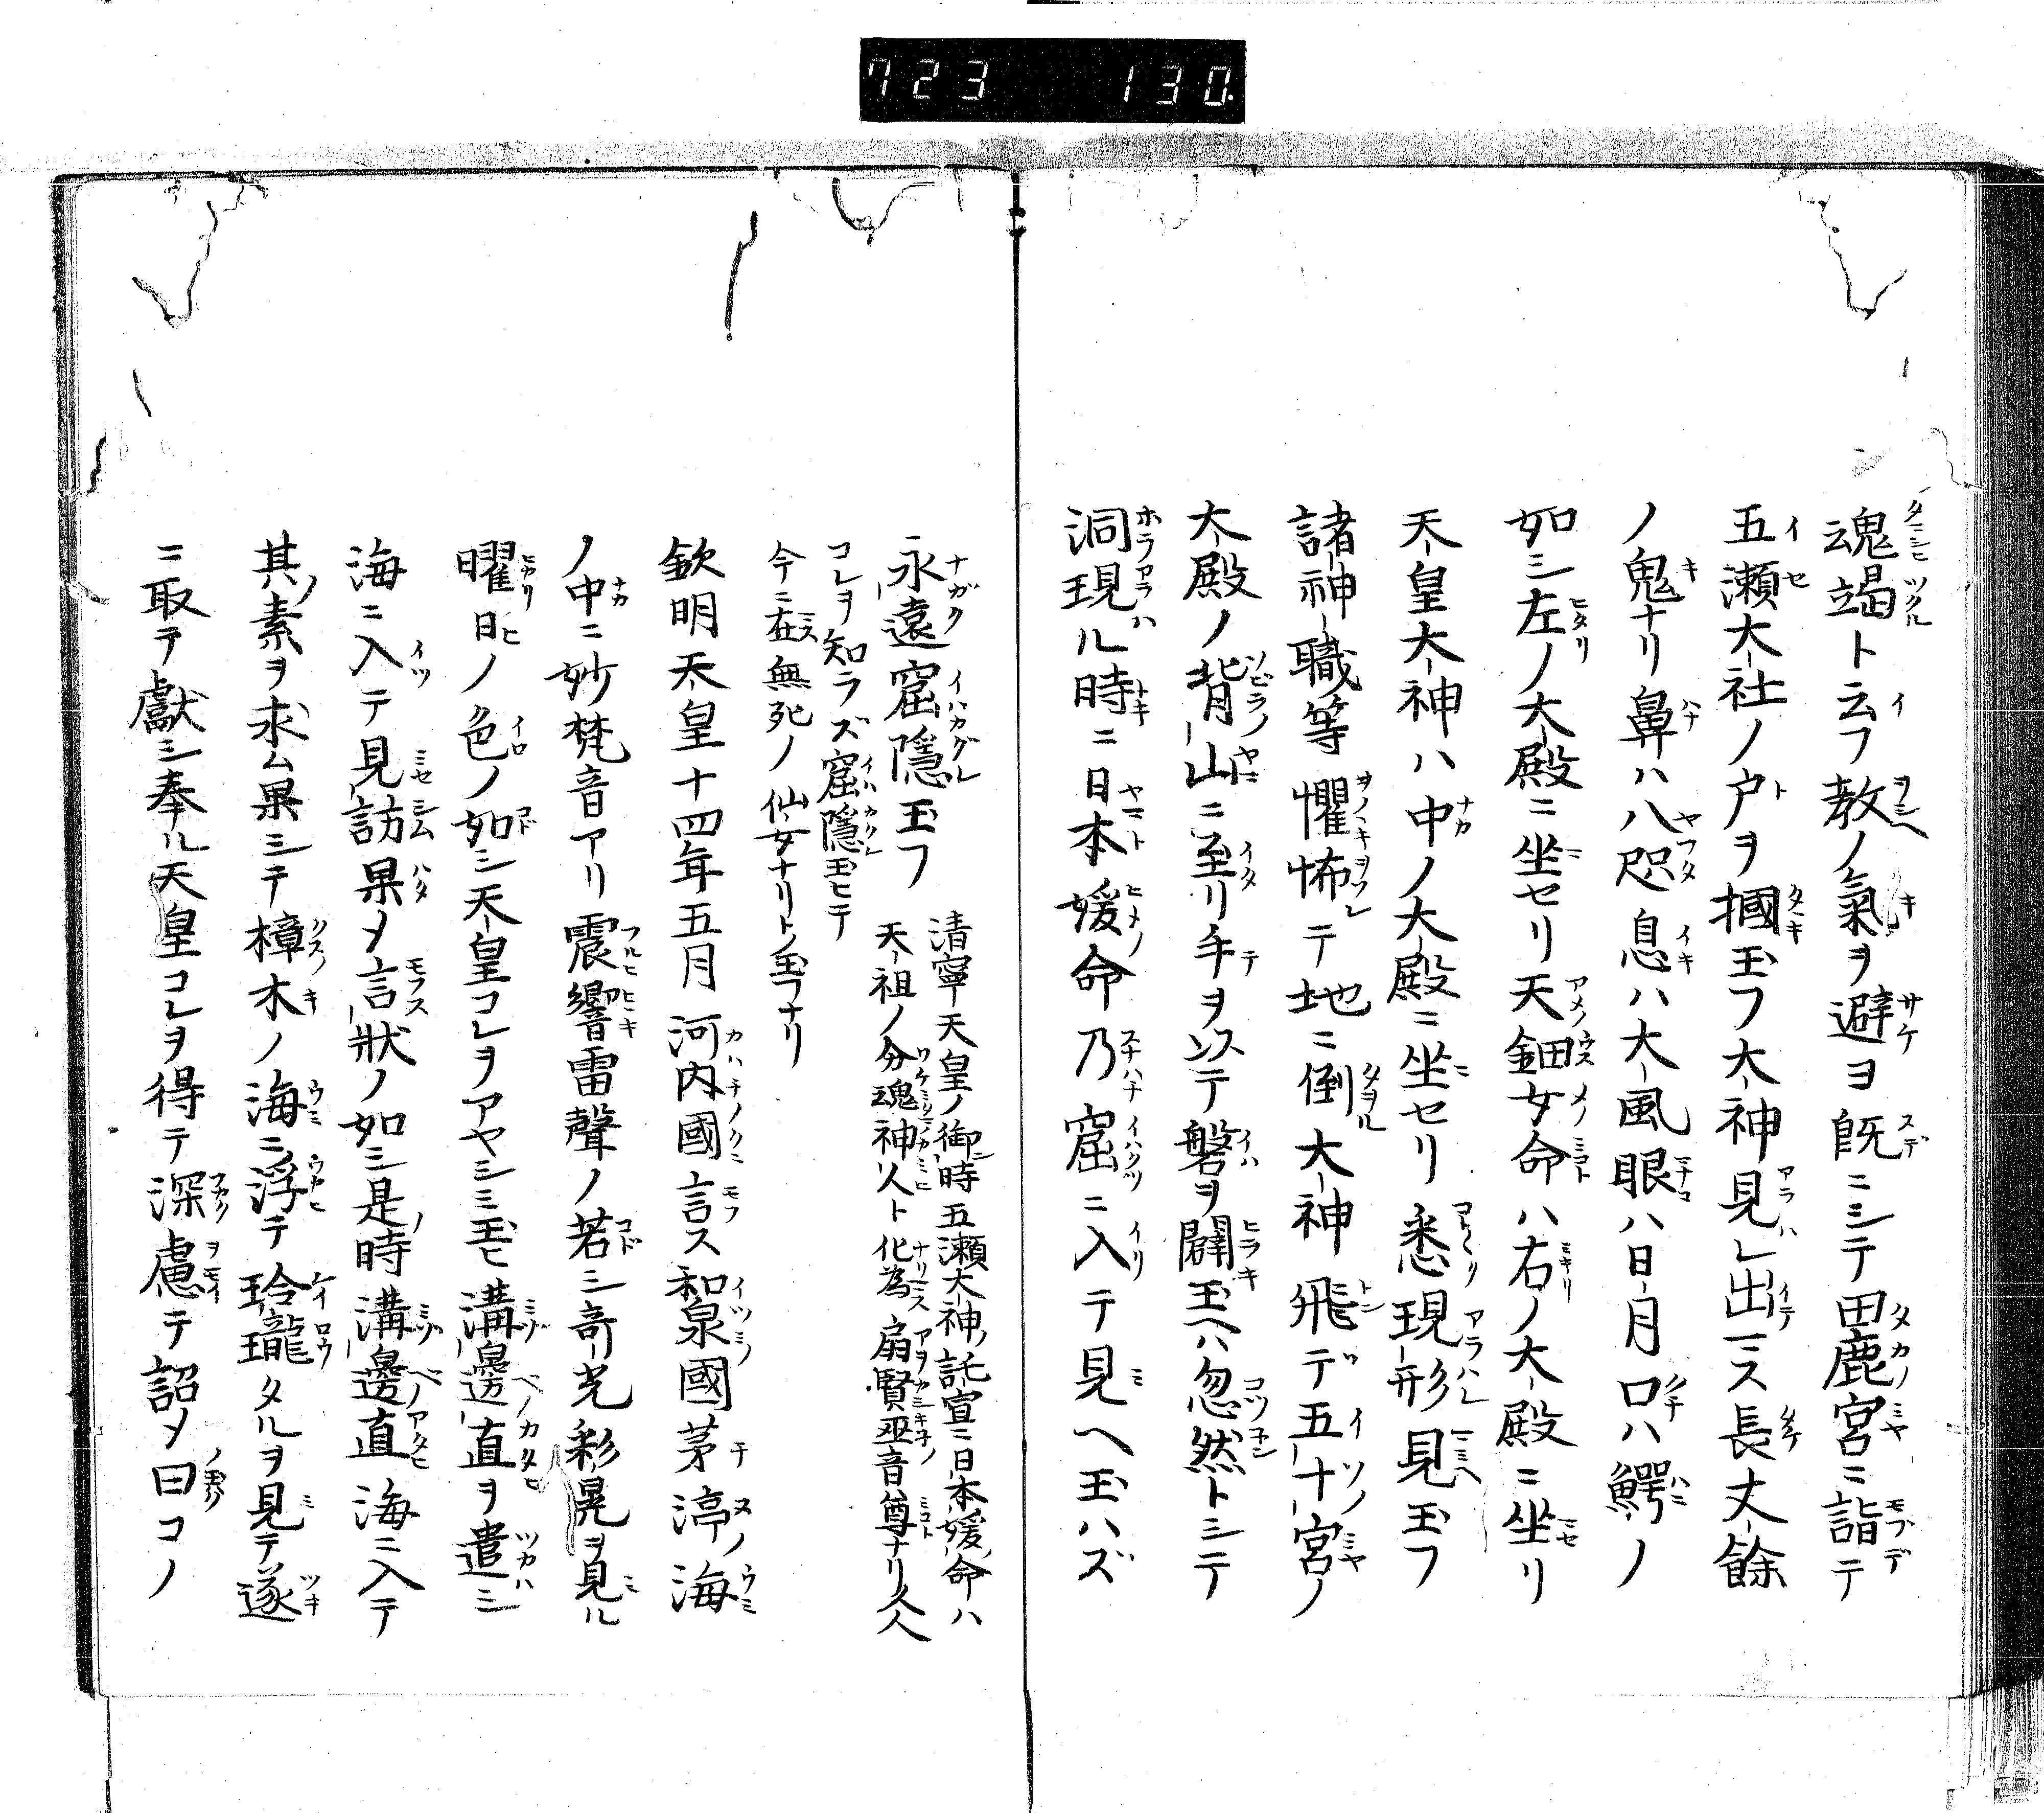 723 130
魂竭ト云フ教ノ氣ヲ避ヨ既ニシテ田鹿宮ニ詣テ
五瀬大社ノ戸ヲ摑玉フ大神見レ出マス長丈餘
ノ鬼ナリ鼻ハ八咫息ハ大風眼ハ日月口ハ鰐ノ
如シ左ノ大殿ニ坐セリ天鈿女命ハ右ノ大殿ニ坐リ
天皇大神ハ中ノ大殿ニ坐セリ悉現形見玉フ
諸神職等懼怖テ地ニ倒大神飛デ五十宮ノ
大殿ノ背山ニ至リ手ヲ以テ磐ヲ闢玉ヘハ忽然トシテ
洞現ル時ニ日本媛命乃窟ニ入テ見ヘ玉ハズ
永遠窟隱玉フ
清寧天皇ノ御時五瀬大神ノ託宣ニ日本媛命ハ
天祖ノ分魂神人ト化為扇賢巫音尊ナリ久人
コレヲ知ラズ窟隱玉ヒテ
今ニ在無死ノ仙女ナリト玉フナリ
欽明天皇十四年五月河内國言ス和泉國茅渟海
ノ中ニ妙梵音アリ震響雷聲ノ若シ奇光彩晃ヲ見ル
曜日ノ色ノ如シ天皇コレヲアヤシミ玉ヒ溝邊直ヲ遣シ
海ニ入テ見訪果メ言狀ノ如シ是時溝邊直海ニ入テ
其素ヲ求ム果シテ樟木ノ海ニ浮テ玲瓏タルヲ見テ遂
ニ取テ獻シ奉ル天皇コレヲ得テ深慮テ詔メ曰コノ